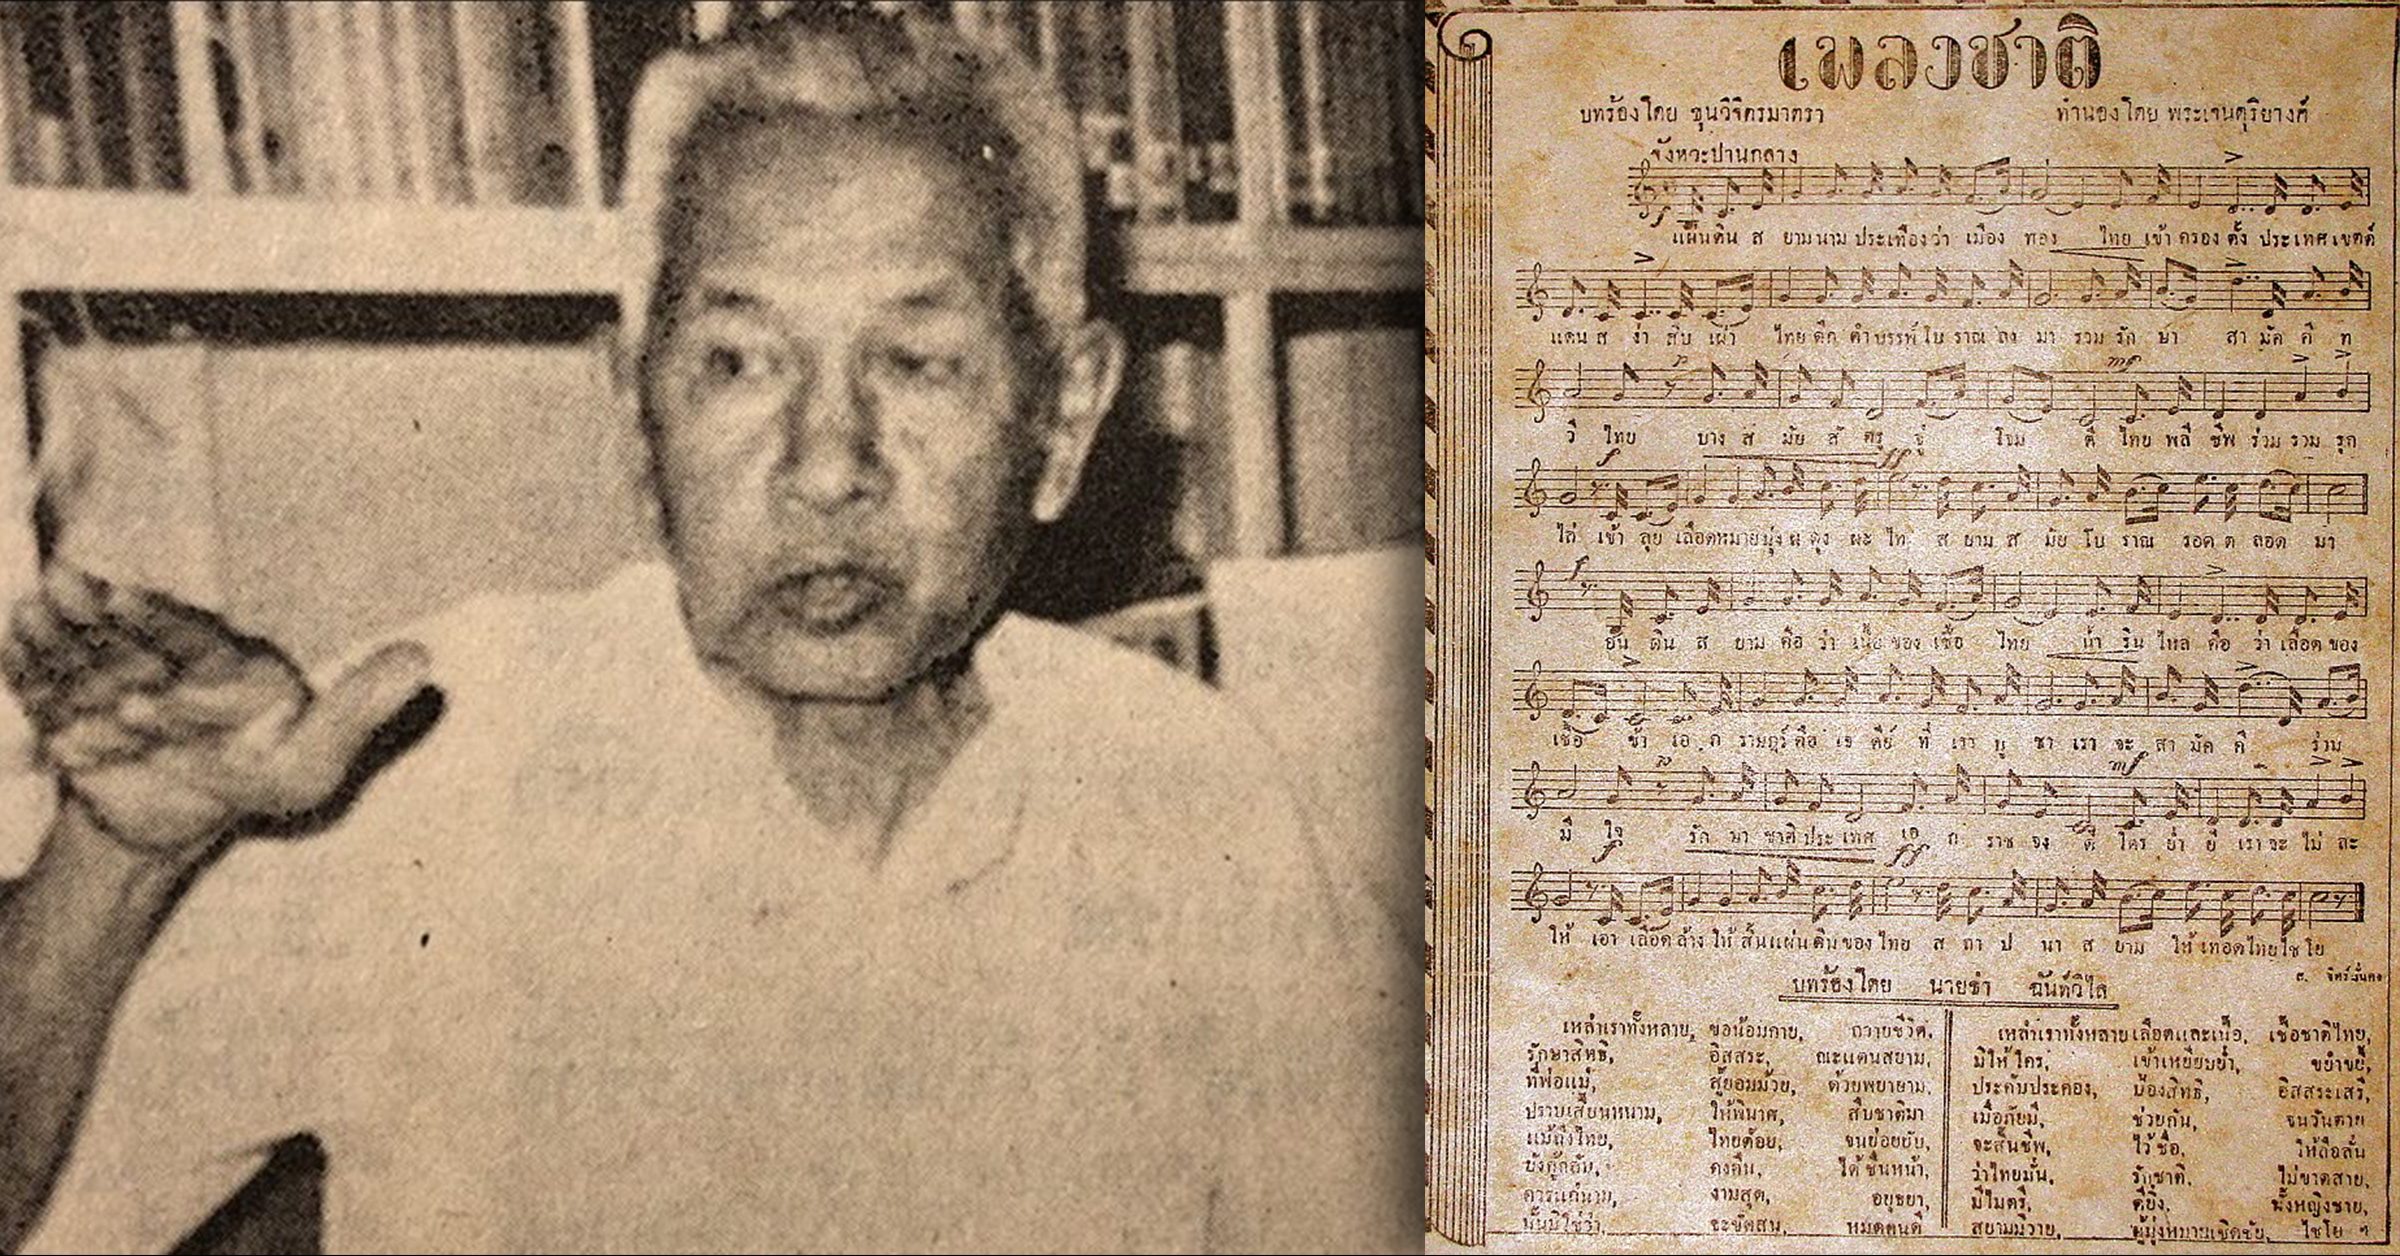 เพลงชาติ
บทร้องโดย ขุนวิจิตรมาตรา ทำนองโดย พระเจนดุริยางค์
จังหวะปานกลาง
f
แผ่นดิน ส ยาม นาม ประเทืองว่า เมือง ทอง ไทย เข้า ครอง ตั้ง ประเทศ เขตต์
แดน ส ง่า สืบ เผ่า ไทย ดึก ดำ บรรพ์ โบ ราณ ลง มา รวม รัก ษา สา มัค คี ท
p mf
วี ไทย บาง ส มัย ศั ตรู จู่ โจม ตี ไทย พลี ชีพ ร่วม รวม รุก
f ff
ไล่ เข้า ลุย เลือดหมายมุ่ง ผ ดุง ผะ ไท ส ยาม ส มัย โบ ราณ รอด ต ลอด มา
f
อัน ดิน ส ยาม คือ ว่า เนื้อ ของ เชื้อ ไทย น้ำ ริน ไหล คือ ว่า เลือด ของ
เชื้อ ข้า เอ ก ราษฎร์ คือ เจ ดีย์ ที่ เรา บู ชา เรา จะ สา มัค คี ร่วม
p mf
มี ใจ รัก ษา ชาติ ประ เทศ เอ ก ราช จง ดี ใคร ย่ำ ยี เรา จะ ไม่ ละ
f ff
ให้ เอา เลือด ล้าง ให้ สิ้น แผ่น ดิน ของ ไทย ส ถา ป นา ส ยาม ให้ เทอด ไทย ไช โย
บทร้องโดย นายฉ่ำ ฉันท์วิไล
เหล่าเราทั้งหลาย, ขอน้อมกาย, ถวายชีวิต, เหล่าเราทั้งหลาย เลือดและเนื้อ, เชื้อชาติไทย,
รักษาสิทธิ, อิสสระ, ณะแดนสยาม, มิให้ใคร, เข้าเหยียบย่ำ, ขยำขยี้,
ที่พ่อแม่, สู้ยอมม้วย, ด้วยพยายาม, ประคับประคอง, ป้องสิทธิ, อิสสระเสรี,
ปราบเสี้ยนหนาม, ให้พินาศ, สืบชาติมา เมื่อภัยมี, ช่วยกัน, จนวันตาย
แม้ถึงไทย, ไทยด้อย, จนย่อยยับ, จะสิ้นชีพ, ไว้ชื่อ, ให้ลือลั่น
ยังกู้กลับ, คงคืน, ได้ชื่นหน้า, ว่าไทยมั่น, รักชาติ, ไม่ขาดสาย,
ควรแก่นาม, งามสุด, อยุธยา, มีไมตรี, ดียิ่ง, ทั้งหญิงชาย,
นั้นมิใช่ว่า, จะขัดสน, หมดคนดี สยามมิวาย, ผู้มุ่งหมายเชิดชัย, ไชโย ฯ